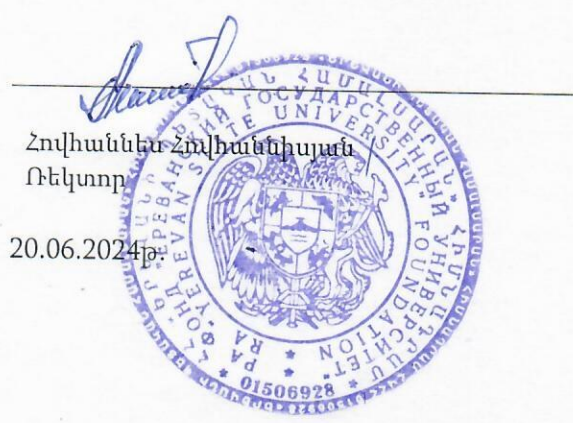 Հովհաննես Հովհաննիսյան
Ռեկտոր
20.06.2024թ.
ՀՀ "ԵՐԵՎԱՆԻ ՊԵՏԱԿԱՆ ՀԱՄԱԼՍԱՐԱՆ" ՀԻՄՆԱԴՐԱՄ
РА ФОНД "ЕРЕВАНСКИЙ ГОСУДАРСТВЕННЫЙ УНИВЕРСИТЕТ"
RA "YEREVAN STATE UNIVERSITY" FOUNDATION
01506928